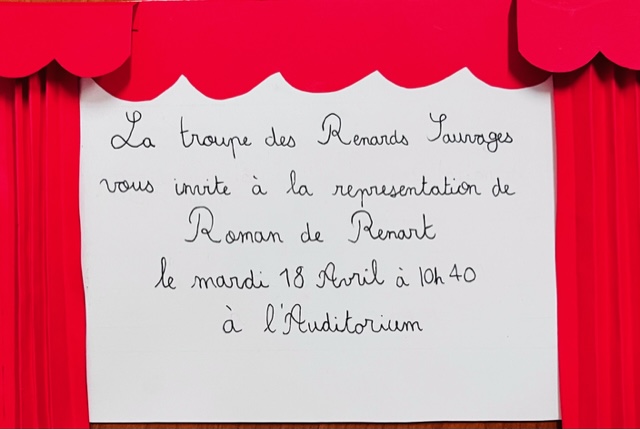 La troupe des Renards Sauvages
vous invite à la representation de
Roman de Renart
le mardi 18 Avril à 10h40
à l'Auditorium